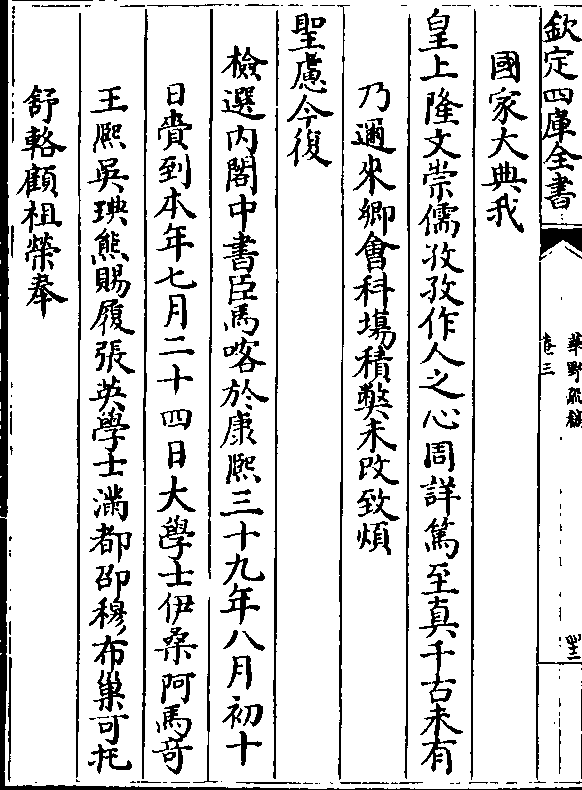 欽定四庫全書
華野疏稿
卷三
國家大典我
皇上隆文崇儒孜孜作人之心周詳篤至真千古未有
乃邇來鄉會科場積弊未改致煩
聖慮今復
檢選内閣中書臣馬喀於康熙三十九年八月初十
日賫到本年七月二十四日大學士伊桑阿馬竒
王熙吳琠熊賜履張英學士滿都邵穆布巢可托
舒輅顧祖榮奉